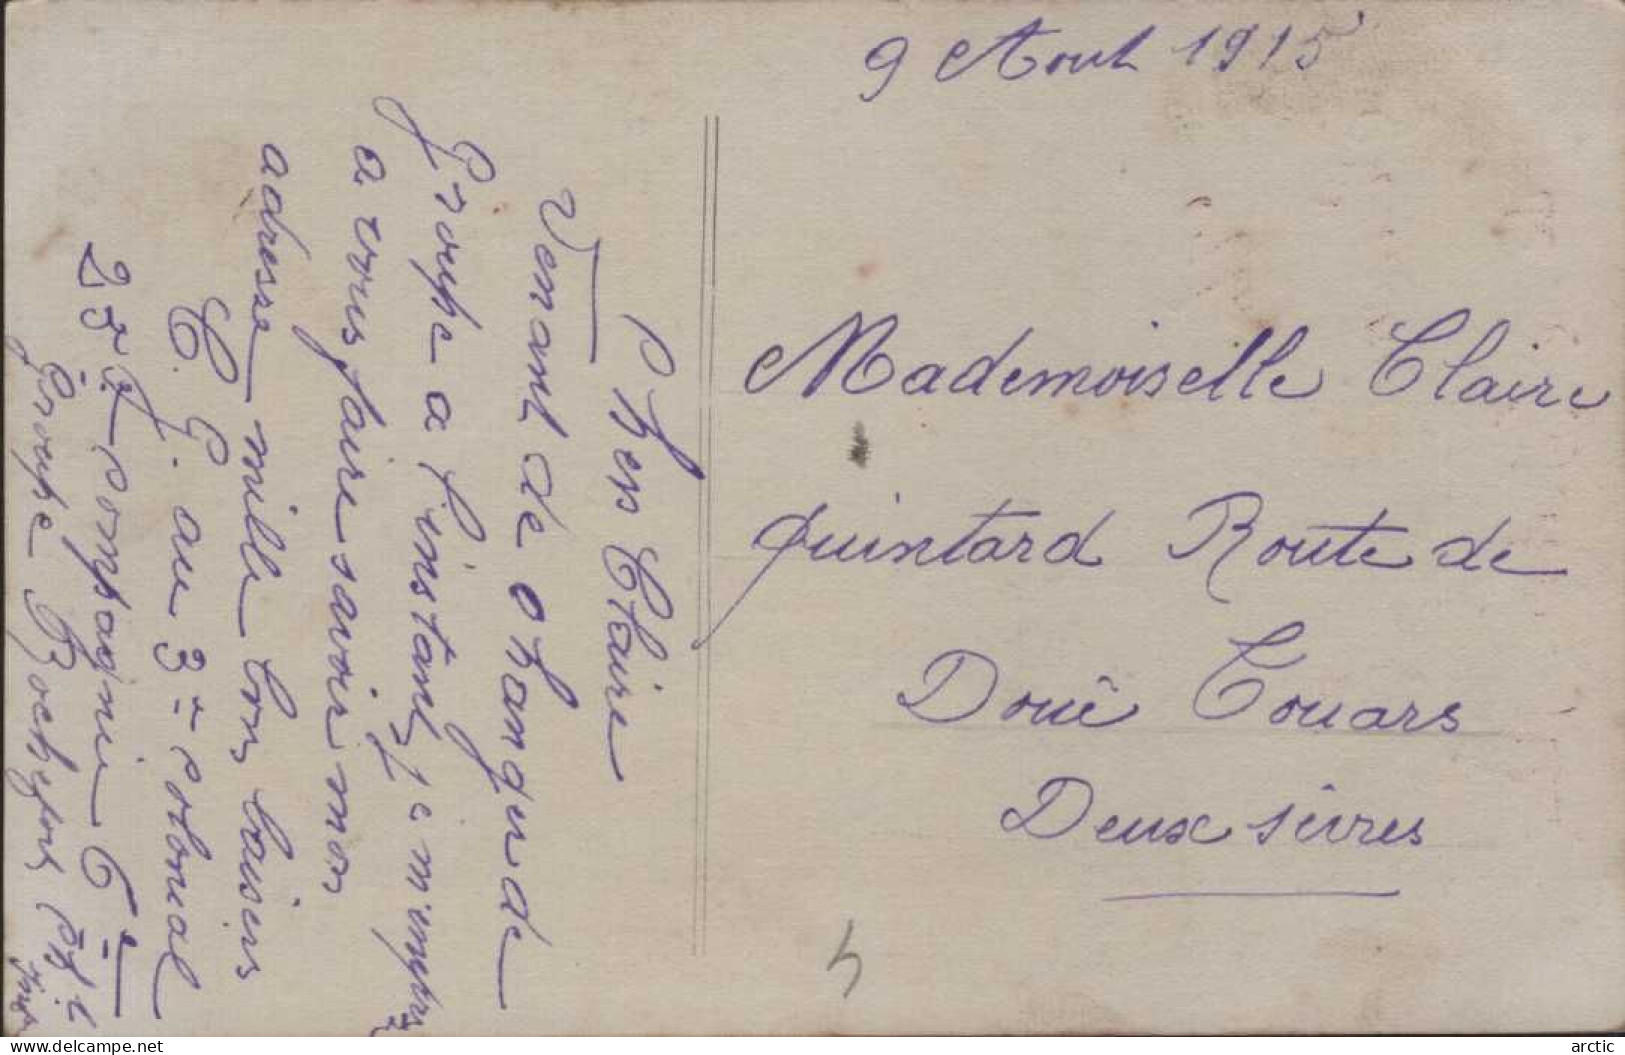 9 Aout 1915
Mademoiselle Claire
Quintard Route de
Doué Touars
Deux sèvres
Cher Claire
Venant de changer de
Groupe a l'instant je m'empres
a vous faire savoir mon
adresse mille bon baisers
E. G. au 3= colonial
25= compagnie 6=
Groupe Rochefort
www.delcampe.net
arctic